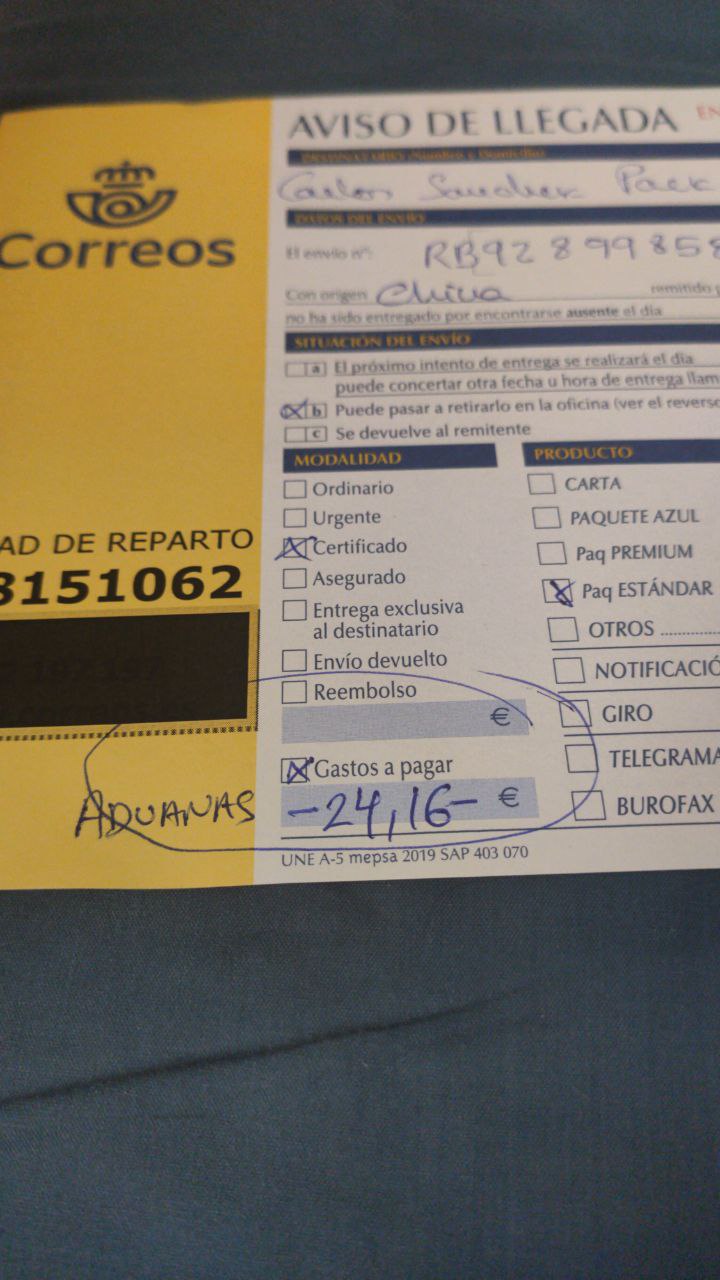 AVISO DE LLEGADA EN
DESTINATARIO (Nombre y Domicilio)
Carlos Sanchez Pack
DATOS DEL ENVÍO
El envío nº: RB92899858
Con origen China remitido p
no ha sido entregado por encontrarse ausente el día
SITUACIÓN DEL ENVÍO
a El próximo intento de entrega se realizará el día
puede concertar otra fecha u hora de entrega llam
X b Puede pasar a retirarlo en la oficina (ver el reverso
c Se devuelve al remitente
Correos
AD DE REPARTO
8151062
MODALIDAD
Ordinario
Urgente
X Certificado
Asegurado
Entrega exclusiva
al destinatario
Envío devuelto
Reembolso
€
X Gastos a pagar
ADUANAS -24,16- €
PRODUCTO
CARTA
PAQUETE AZUL
Paq PREMIUM
X Paq ESTÁNDAR
OTROS ..............
NOTIFICACIÓ
GIRO
TELEGRAMA
BUROFAX
UNE A-5 mepsa 2019 SAP 403 070